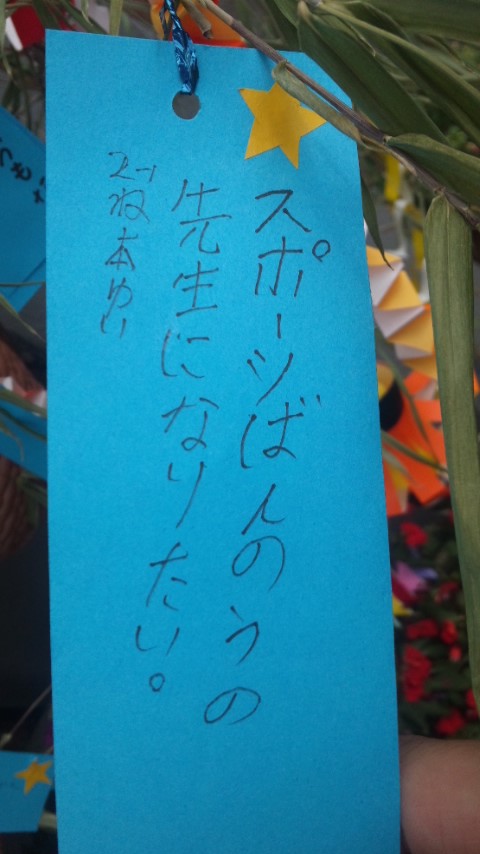 スポーツばんのうの
先生になりたい。
2-1 根本ゆい